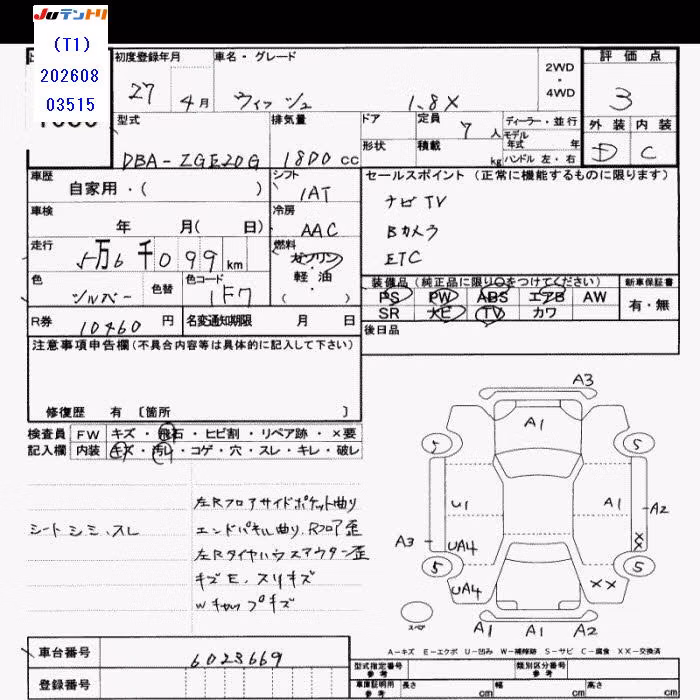 Juテントリ
(T1)
202608
03515
初度登録年月
車名・グレード
2WD
・
4WD
評価点
27
4月
ウィッシュ
1.8X
3
型式
排気量
ドア
定員
7人
ディーラー・並行
モデル
年式 年
外装
内装
DBA-ZGE20G
1800cc
形状
積載
kg
ハンドル 左・右
D
C
車歴
自家用・( )
シフト
1AT
セールスポイント (正常に機能するものに限ります)
車検
年 月( 日)
冷房
AAC
ナビTV
Bカメラ
ETC
走行
5万6千099km
燃料
ガソリン
軽・油
( )
色
シルバー
色替
色コード
1F7
装備品 (純正品に限り○をつけてください)
新車保証書
PS
PW
ABS
エアB
AW
有・無
SR
カワ
TV
R券
10460円
名変通知期限
月 日
後日品
注意事項申告欄 (不具合内容等は具体的に記入して下さい)
修復歴 有 〔箇所 〕
検査員
記入欄
FW
キズ・飛石・ヒビ割・リペア跡・×要
内装
キズ・汚レ・コゲ・穴・スレ・キレ・破レ
シートシミ、スレ
左Rフロアサイドポケット曲り
エンドパネル曲り、Rフロア歪
左Rタイヤハウスアウター歪
キズE、スリキズ
Wキャップキズ
A3
A1
5
5
U1
A1
A2
A3
UA4
×
×
5
5
UA4
××
スペア
A1
A1
A2
A-キズ E-エクボ U-凹み W-補修跡 S-サビ C-腐食 XX-交換済
車台番号
6023669
登録番号
型式指定番号
参考
類別区分番号
参考
車庫証明用
参考
長さ
cm
幅
cm
高さ
cm